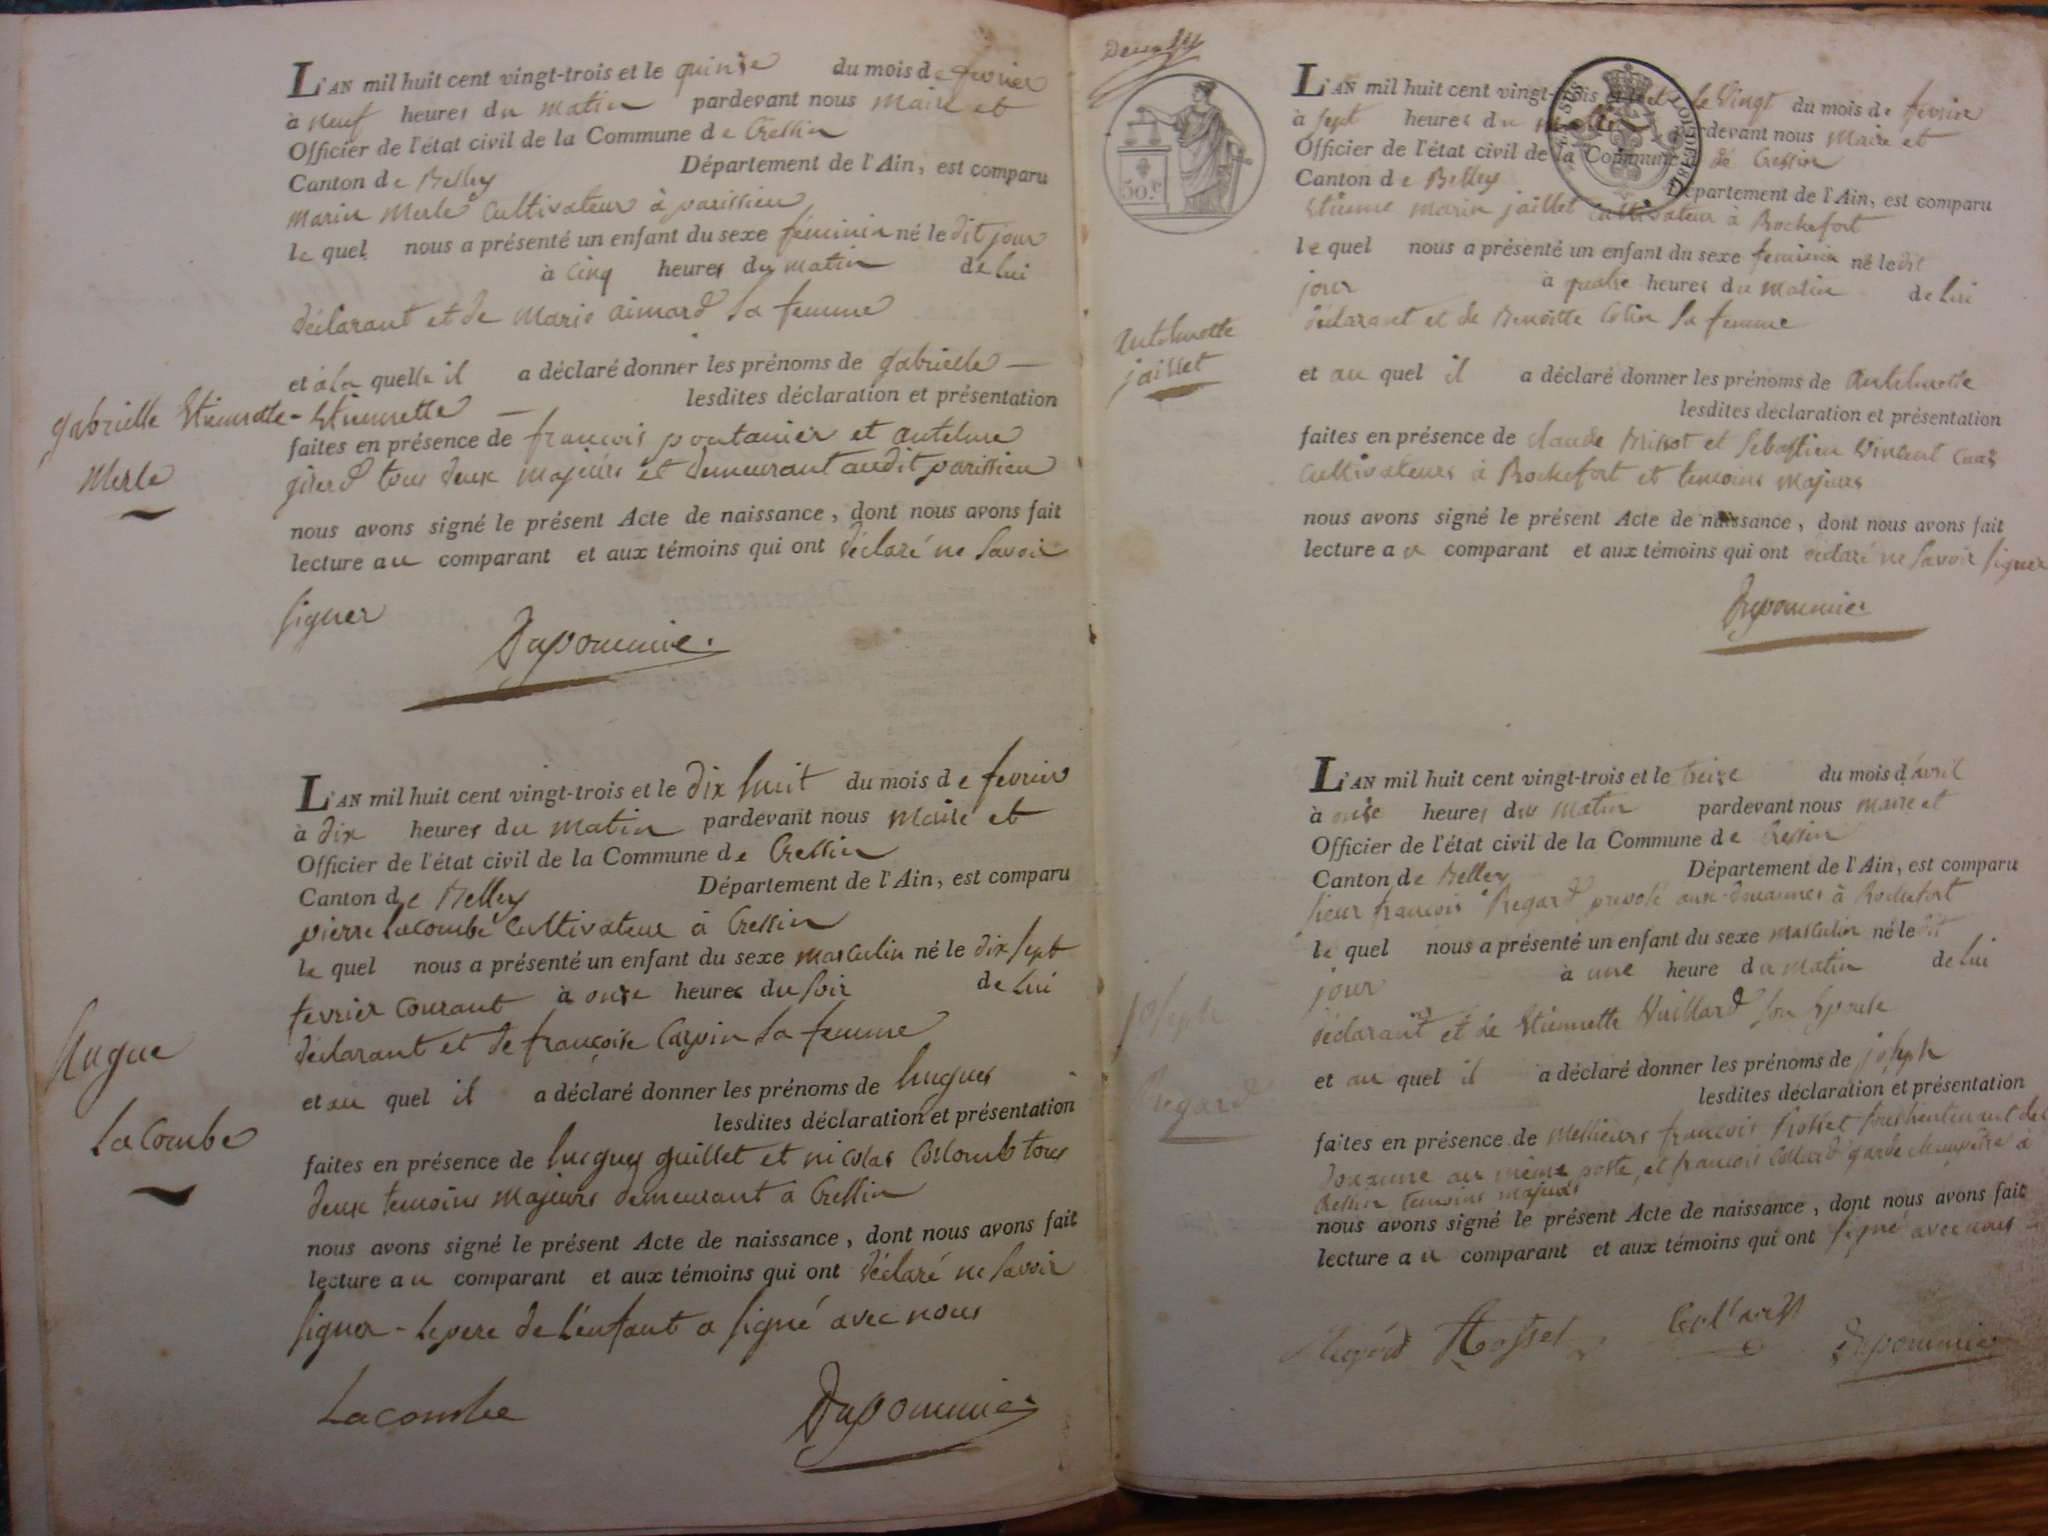 L'AN mil huit cent vingt-trois et le quinze du mois de fevrier
à neuf heures du matin pardevant nous maire et
Officier de l'état civil de la Commune de Cressin
Canton de Belley Département de l'Ain, est comparu
marin merle cultivateur à parissieu
le quel nous a présenté un enfant du sexe feminin né le dit jour
à cinq heures du matin de lui
déclarant et de marie aimard sa femme
et à la quelle il a déclaré donner les prénoms de gabrielle —
gabrielle Etiennette
- Etiennette — lesdites déclaration et présentation
Merle
faites en présence de françois pontanier et antelme
girerd tous deux majeurs et demeurant audit parissieu
nous avons signé le présent Acte de naissance, dont nous avons fait
lecture au comparant et aux témoins qui ont déclaré ne savoir
signer
Dupommier
L'AN mil huit cent vingt-trois et le dix huit du mois de fevrier
à dix heures du matin pardevant nous maire et
Officier de l'état civil de la Commune de Cressin
Canton de Belley Département de l'Ain, est comparu
pierre Lacombe cultivateur à Cressin
le quel nous a présenté un enfant du sexe masculin né le dix sept
fevrier courant à onze heures du soir de lui
déclarant et de françoise Carpin sa femme
Hugue
Lacombe
et au quel il a déclaré donner les prénoms de hugues
lesdites déclaration et présentation
faites en présence de hugues guillet et nicolas Collomb tous
deux temoins majeurs demeurant à Cressin
nous avons signé le présent Acte de naissance, dont nous avons fait
lecture au comparant et aux témoins qui ont déclaré ne savoir
signer - le pere de l'enfant a signé avec nous
Lacombe Dupommier
50.c
L'AN mil huit cent vingt-trois et le vingt du mois de fevrier
à sept heures du pardevant nous maire et
Officier de l'état civil de la Commune de Cressin
Canton de Belley Département de l'Ain, est comparu
Etienne marin jaillet cultivateur à Rochefort
le quel nous a présenté un enfant du sexe feminin né le dit
jour à quatre heures du matin de lui
déclarant et de Benoitte Cotin sa femme
Antelmette
jaillet
et au quel il a déclaré donner les prénoms de Antelmette
lesdites déclaration et présentation
faites en présence de claude Brissot et Sebastien Vincent
cultivateurs à Rochefort et temoins majeurs
nous avons signé le présent Acte de naissance, dont nous avons fait
lecture au comparant et aux témoins qui ont déclaré ne savoir signer
Dupommier
L'AN mil huit cent vingt-trois et le treize du mois d'avril
à onze heures du matin pardevant nous maire et
Officier de l'état civil de la Commune de Cressin
Canton de Belley Département de l'Ain, est comparu
sieur françois Regard preposé aux douannes à Rochefort
le quel nous a présenté un enfant du sexe masculin né le dit
jour à une heure du matin de lui
déclarant et de Etiennette Vuillard son Epouse
joseph
Regard
et au quel il a déclaré donner les prénoms de joseph
lesdites déclaration et présentation
faites en présence de messieurs françois Rosset souslieutenant des
douanne au même poste, et françois Collard garde champêtre à
Cressin temoins majeurs
nous avons signé le présent Acte de naissance, dont nous avons fait
lecture au comparant et aux témoins qui ont signé avec nous
Regard Rosset Collard Dupommier